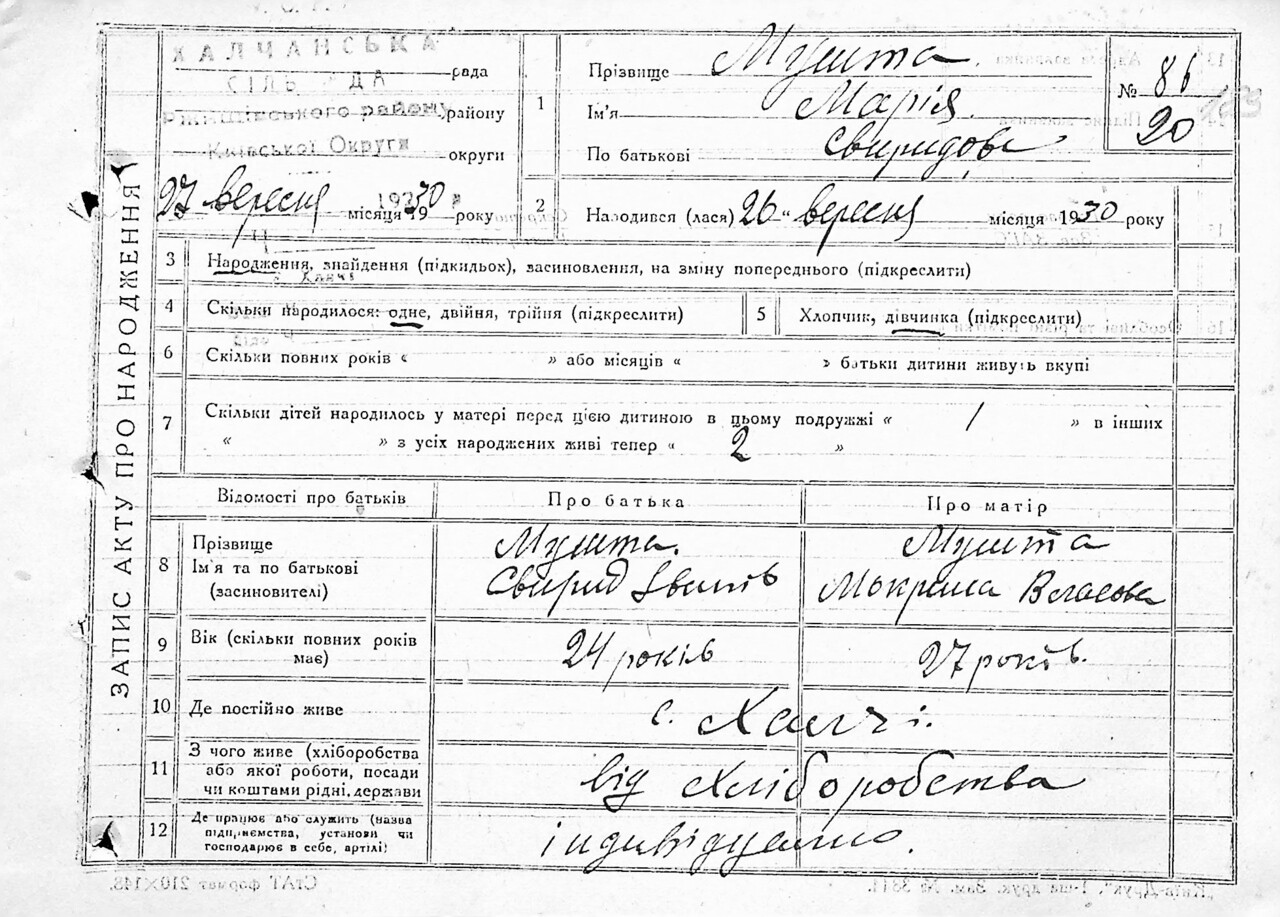 ЗАПИС АКТУ ПРО НАРОДЖЕННЯ
ХАЛЧАНСЬКА
СІЛЬ ДА рада
Ржищівського району району
Київської Округи округи
27 вересня місяця 1930 року
1 Прізвище Мушта.
Ім'я Марія
По батькові Свиридова
№ 86
20
2 Народився (лася) 26 " вересня місяця 1930 року
3 Народження, знайдення (підкидьох), засиновлення, на зміну попереднього (підкреслити)
4 Скільки народилося: одне, двійня, трійня (підкреслити)
5 Хлопчик, дівчинка (підкреслити)
6 Скільки повних років « » або місяців « » батьки дитини живуть вкупі
7 Скільки дітей народилось у матері перед цією дитиною в цьому подружжі « 1 » в інших
« » з усіх народжених живі тепер « 2 »
Відомості про батьків Про батька Про матір
8 Прізвище
Ім'я та по батькові
(засиновителі)
Мушта.
Свирид Іванів
Мушта
Мокрина Власова
9 Вік (скільки повних років
має)
24 років
27 років.
10 Де постійно живе с. Халчі.
11 З чого живе (хліборобства
або якої роботи, посади
чи коштами рідні, держави
від хліборобства
12 Де працює або служить (назва
підприємства, установи чи
господарює в себе, артілі)
індивідуально.
„Київ-Друк", 1-ша друк. Зам. № 3811. СтАТ формат 210×148.